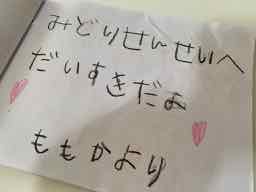 みどりせんせいへ
だいすきだよ
ももかより